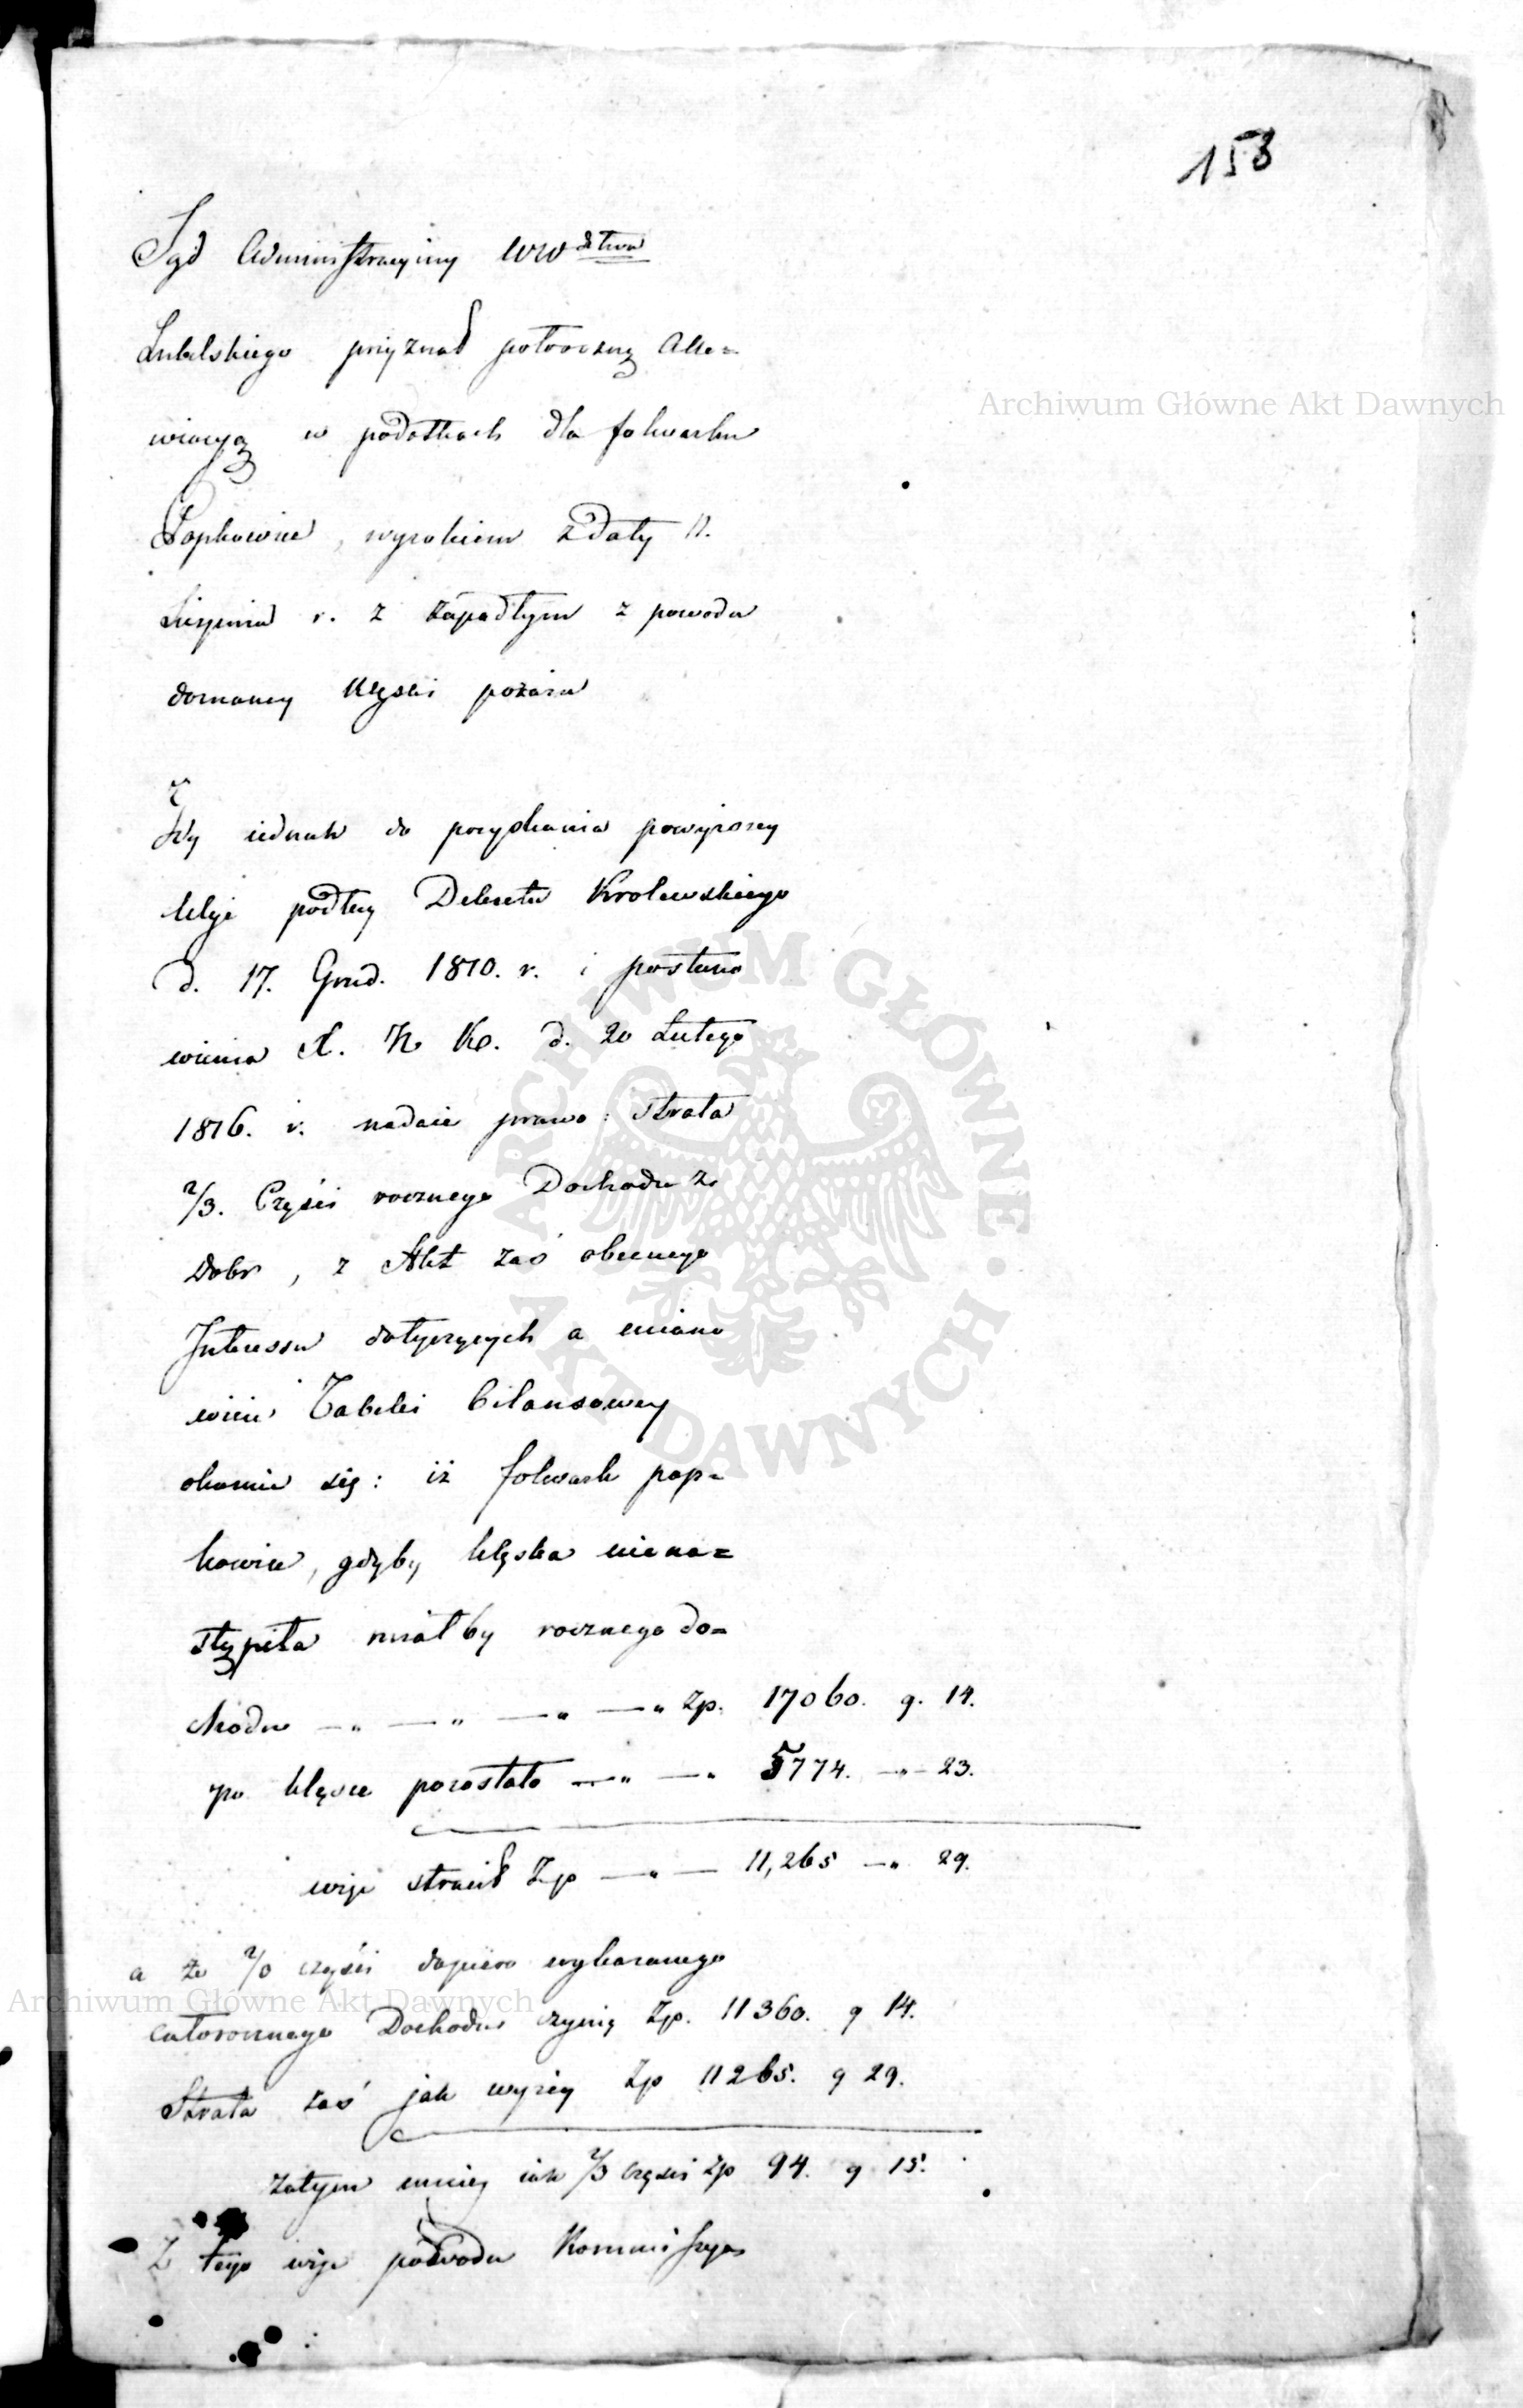 153
Sąd Administracyiny WW dztwa
Lubelskiego przyznał półroczną Alle=
wiacyą w podatkach dla folwarku
Popkowice, wyrokiem z daty 11.
Sierpnia r. z zapadłym z powodu
doznaney klęski pożaru
Gdy iednak do pozyskania powyższey
ulgi podług Dekretu Krolewskiego
d. 17. Grud. 1810. r. i postano
wienia X. N. Ko. d. 20 Lutego
1816. r. nadaie prawo: strata
2/3. Części rocznego Dochodu z
Dobr, z Akt zaś obecnego
Interessu dotyczących a miano
wicie Tabelli bilansowey
okazuie się: iż folwark Pop=
kowice, gdyby klęska niena=
stąpiła miałby rocznego do=
chodu —„ —„ —„ —„ Zp. 17060. g. 14.
po klęsce pozostało —„ —„ 5774. —„— 23.
więc stracił Zp —„— 11,265 —„ 29.
a że 2/3 części dopiero wykazanego
całorocznego Dochodu czynią Zp. 11360. g 14.
Strata zaś jak wyżey Zp 11265. g 29.
zatym mniey iak 2/3 części Zp 94. g 15.
Z tego więc powodu Kommissya
Archiwum Główne Akt Dawnych
ARCHIWUM GŁÓWNE · AKT DAWNYCH ·
Archiwum Główne Akt Dawnych